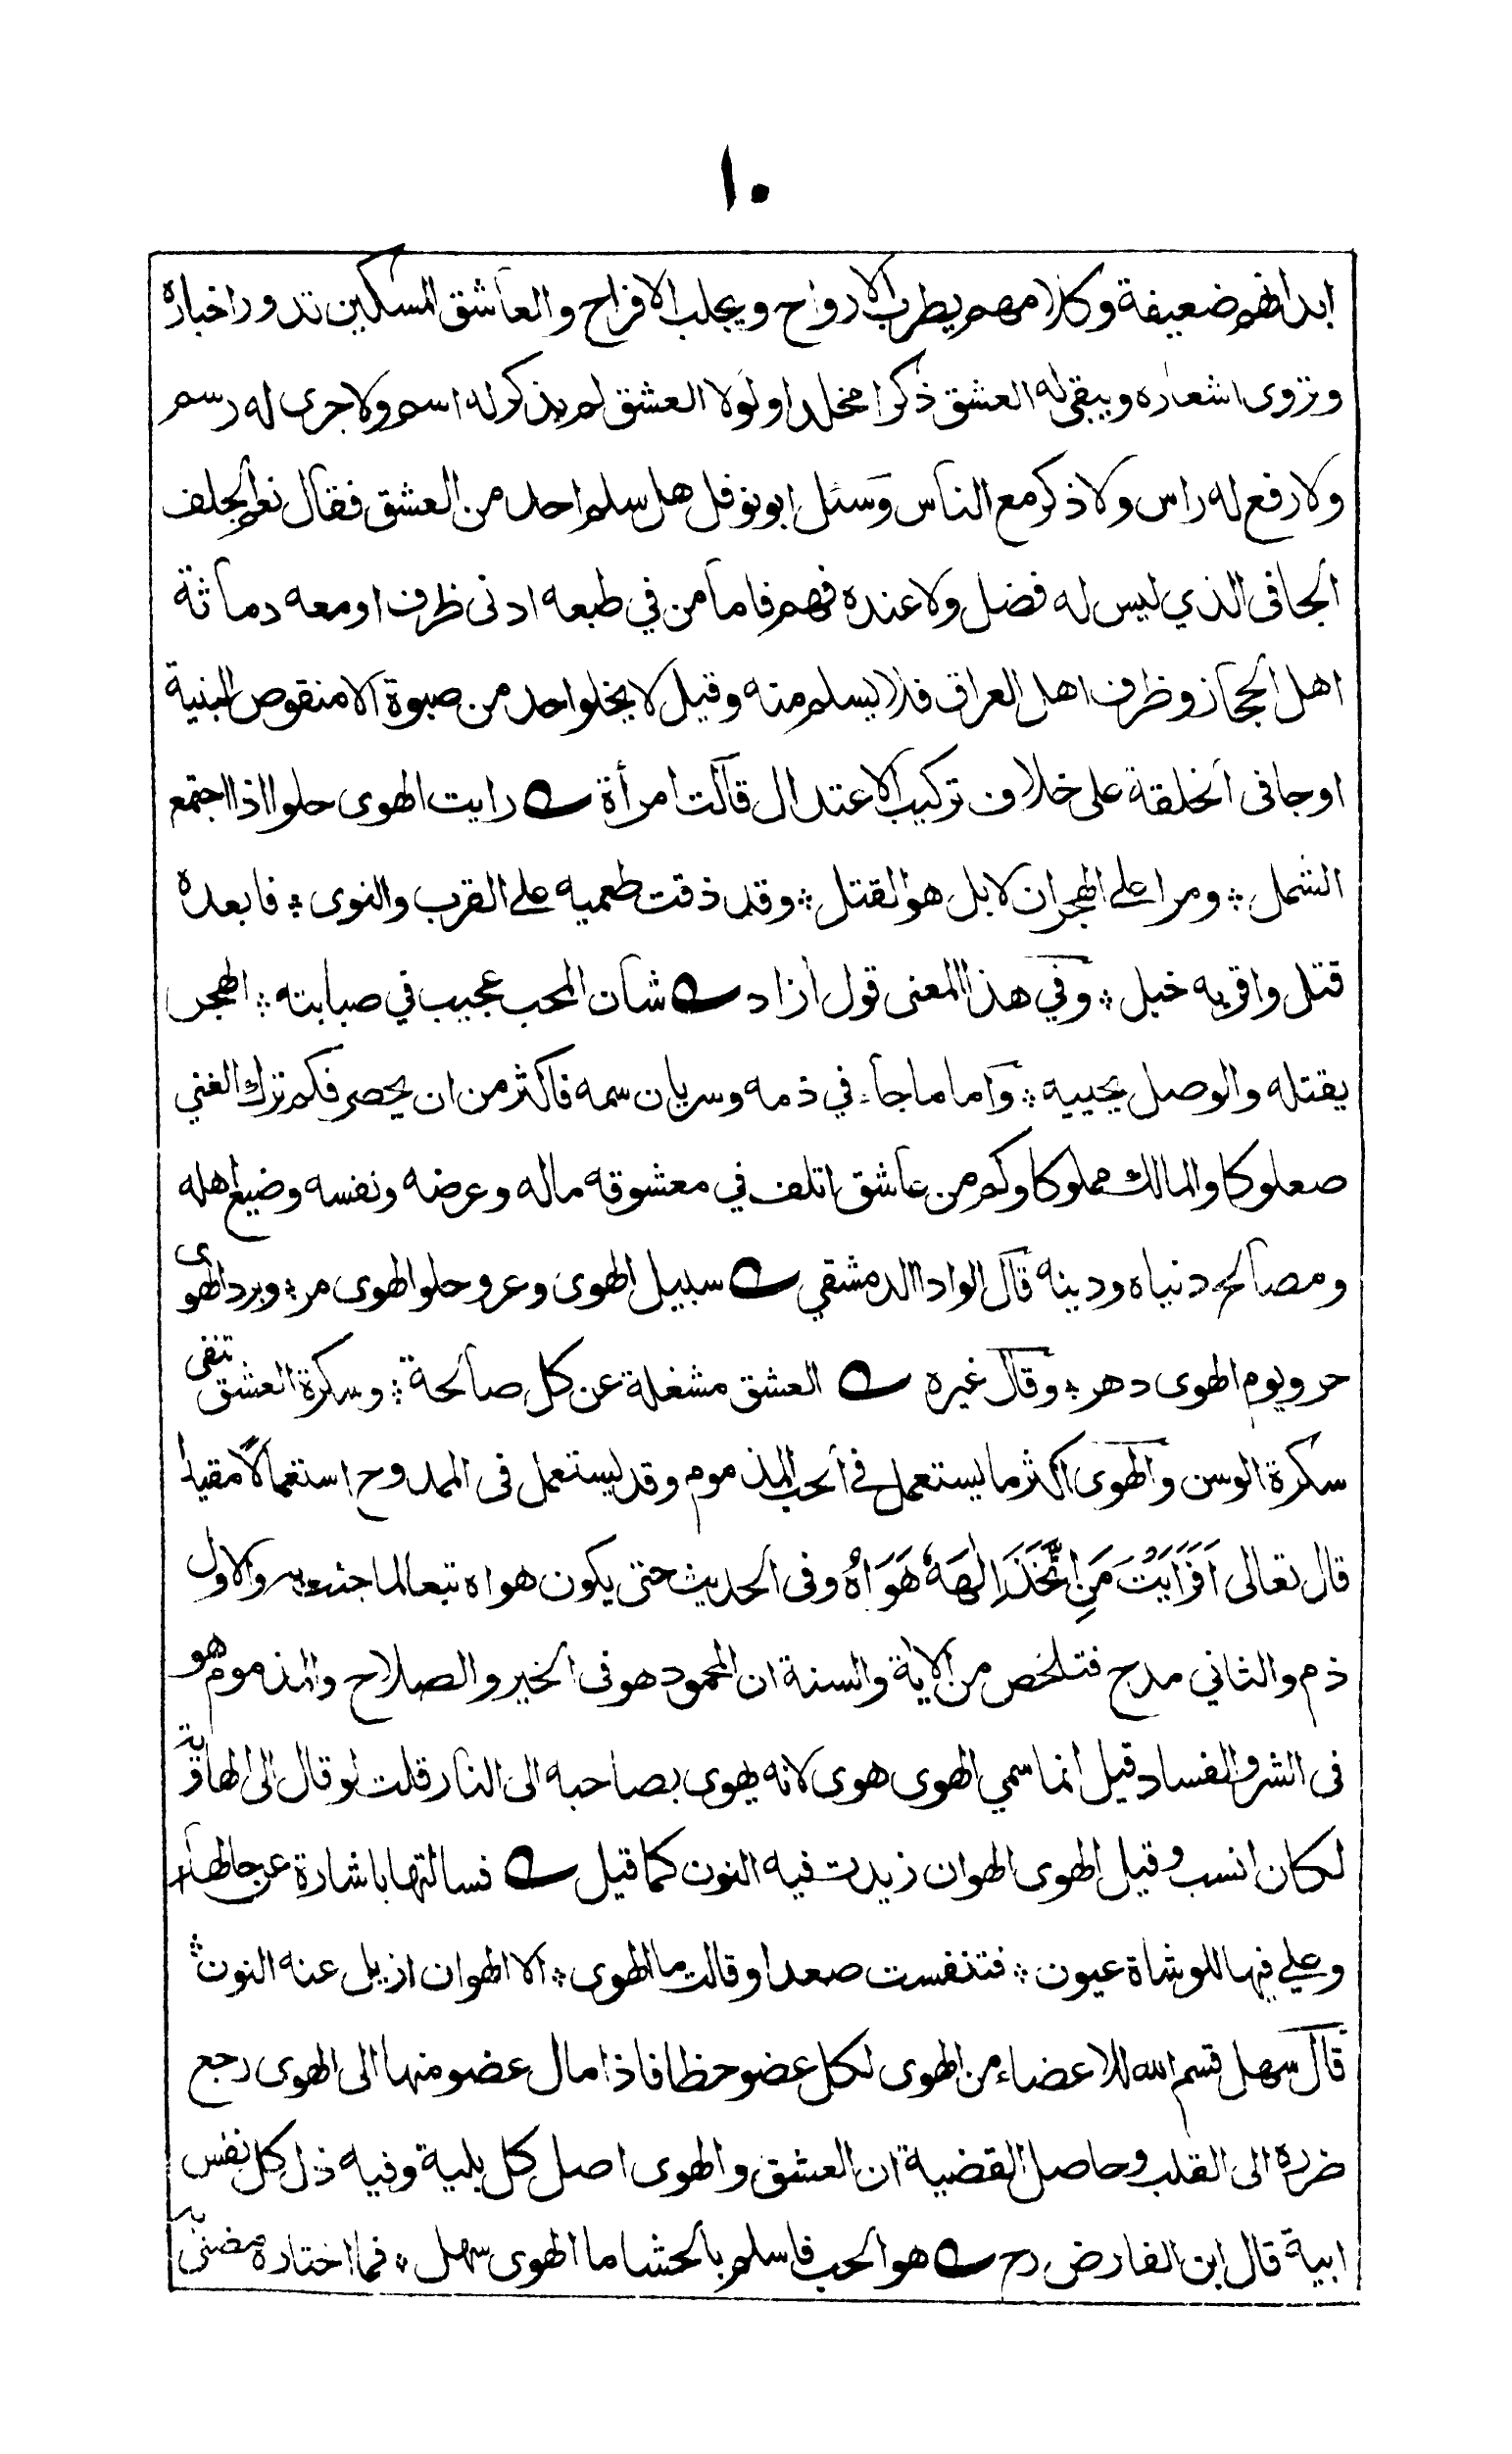 ١٠
ابدانهم ضعيفة وكلامهم يطرب الارواح ويجلب الافراح والعاشق المسكين تدور اخباره
وتروى اشعاره ويبقى له العشق ذكرا مخلدا ولولا العشق لم يذكر له اسم ولا جرى له رسم
ولا رفع له راس ولا ذكر مع الناس وسئل ابو نوفل هل سلم احد من العشق فقال نعم الجلف
الجافى الذي ليس له فضل ولا عنده فهم فاما من في طبعه ادنى ظرف او معه دماثة
اهل الحجاز وظرف اهل العراق فلا يسلم منه وقيل لا يخلو احد من صبوة الا منقوص البنية
او جافى الخلقة على خلاف تركيب الاعتدال قالت امرأة ؎ رايت الهوى حلوا اذا اجتمع
الشمل ؞ ومرا على الهجران لا بل هو القتل ؞ وقد ذقت طعميه على القرب والنوى ؞ فابعده
قتل واقربه خبل ؞ وفي هذا المعنى قول ازاد ؎ شان المحب عجيب في صبابته ؞ الهجر
يقتله والوصل يحييه ؞ واما ما جاء في ذمه وسريان سمه فاكثر من ان يحصر فكم ترك الغني
صعلوكا والمالك مملوكا وكم من عاشق اتلف في معشوقه ماله وعرضه ونفسه وضيع اهله
ومصالح دنياه ودينه قال الواوا الدمشقي ؎ سبيل الهوى وعر وحلو الهوى مر ؞ وبرد الهوى
حر ويوم الهوى دهر ؞ وقال غيره ؎ العشق مشغلة عن كل صالحة ؞ وسكرة العشق تنفى
سكرة الوسن والهوى اكثر ما يستعمل في الحب المذموم وقد يستعمل فى الممدوح استعمالًا مقيدا
قال تعالى اَفَرَاَيْتَ مَنِ اتَّخَذَ اِلٰهَهٗ هَوَاهُ وفى الحديث حتى يكون هواه تبعا لما جئت به والاول
ذم والثاني مدح فتلخص من الاية والسنة ان المحمود هو فى الخير والصلاح والمذموم هو
فى الشر والفساد قيل انما سمي الهوى هوى لانه يهوى بصاحبه الى النار قلت لو قال الى الهاوية
لكان انسب وقيل الهوى الهوان زيدت فيه النون كما قيل ؎ فسالتها باشارة عن حالها
وعلي فيها للوشاة عيون ؞ فتنفست صعدا وقالت ما الهوى ؞ الا الهوان ازيل عنه النون ؞
قال سهل قسم الله للاعضاء من الهوى لكل عضو حظا فاذا مال عضو منها الى الهوى رجع
ضرره الى القلب وحاصل القضية ان العشق والهوى اصل كل بلية وفيه ذل كل نفس
ابية قال ابن الفارض رح ؎ هو الحب فاسلم بالحشا ما الهوى سهل ؞ فما اختاره مضنى به